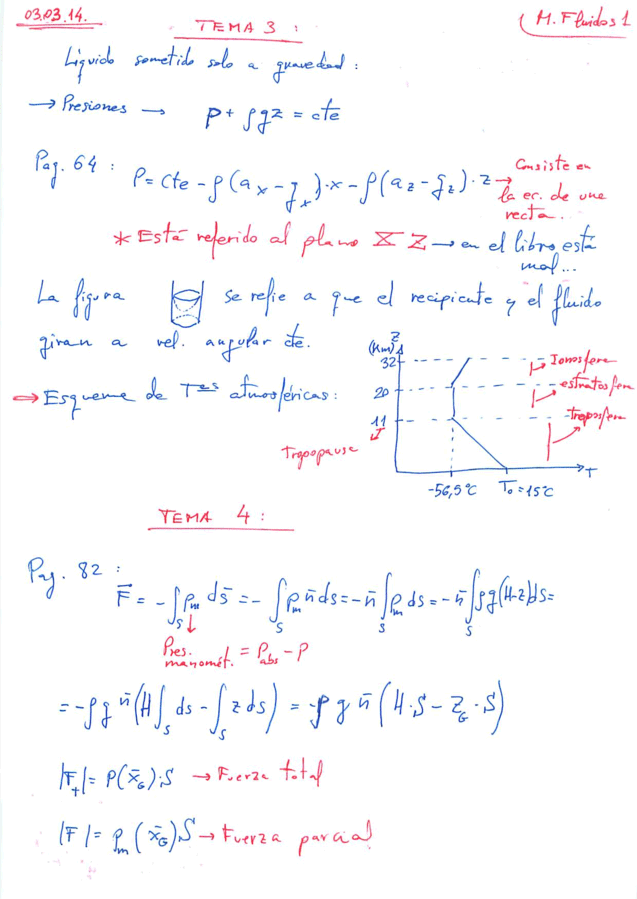 03.03.14.
M. Fluidos 1
TEMA 3 :
Líquido sometido solo a gravedad :
→ Presiones → p + ρgz = cte
Pag. 64 : P = Cte - ρ(a_x - g_x)·x - ρ(a_z - g_z)·z → Consiste en
la ec. de una
recta.
* Está referido al plano XZ → en el libro está
mal...
La figura se refie a que el recipiente y el fluido
giran a vel. angular cte.
⇒ Esquema de Tas atmosféricas :
Z
(Km)
32
20
11
Tropopausa
-56,5ºC
T₀ = 15ºC
T
Ionosfera
estratosfera
troposfera
TEMA 4 :
Pag. 82 :
F̄ = -∫_S p_m ds̄ = -∫_S p_m n̄ ds = -n̄ ∫_S p_m ds = -n̄ ∫_S ρg(H-z)ds =
Pres. manomét. = P_abs - P
= -ρ g n̄ (H ∫_S ds - ∫_S z ds) = -ρ g n̄ (H·S - Z_G·S)
|F_+| = P(x̄_G)·S → Fuerza total
|F| = p_m(x̄_G)S → Fuerza parcial